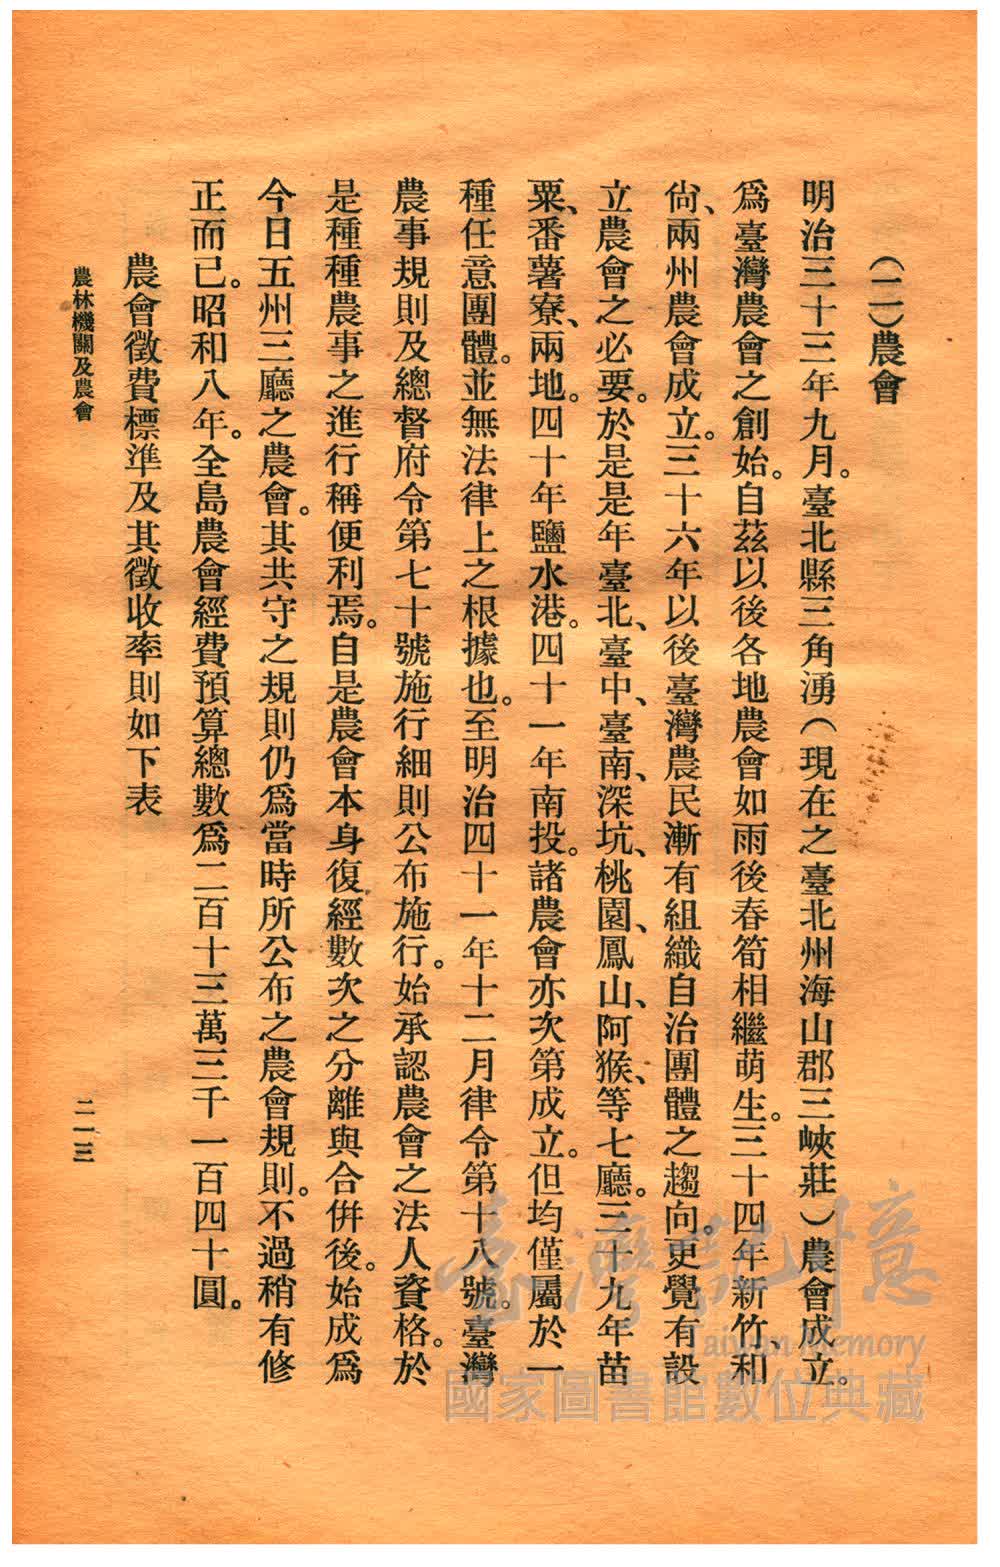 (二)農會
明治三十三年九月。臺北縣三角湧(現在之臺北州海山郡三峽莊)農會成立。
爲臺灣農會之創始。自茲以後各地農會如雨後春筍相繼萌生。三十四年新竹、和
尙、兩州農會成立。三十六年以後臺灣農民漸有組織自治團體之趨向。更覺有設
立農會之必要。於是是年臺北、臺中、臺南、深坑、桃園、鳳山、阿猴、等七廳。三十九年苗
粟、番薯寮、兩地。四十年鹽水港。四十一年南投。諸農會亦次第成立。但均僅屬於一
種任意團體。並無法律上之根據也。至明治四十一年十二月律令第十八號。臺灣
農事規則及總督府令第七十號施行細則公布施行。始承認農會之法人資格。於
是種種農事之進行稱便利焉。自是農會本身復經數次之分離與合倂後。始成爲
今日五州三廳之農會。其共守之規則仍爲當時所公布之農會規則。不過稍有修
正而已。昭和八年。全島農會經費預算總數爲二百十三萬三千一百四十圓。
農會徵費標準及其徵收率則如下表
農林機關及農會
二一三
臺灣記憶
Taiwan Memory
國家圖書館數位典藏